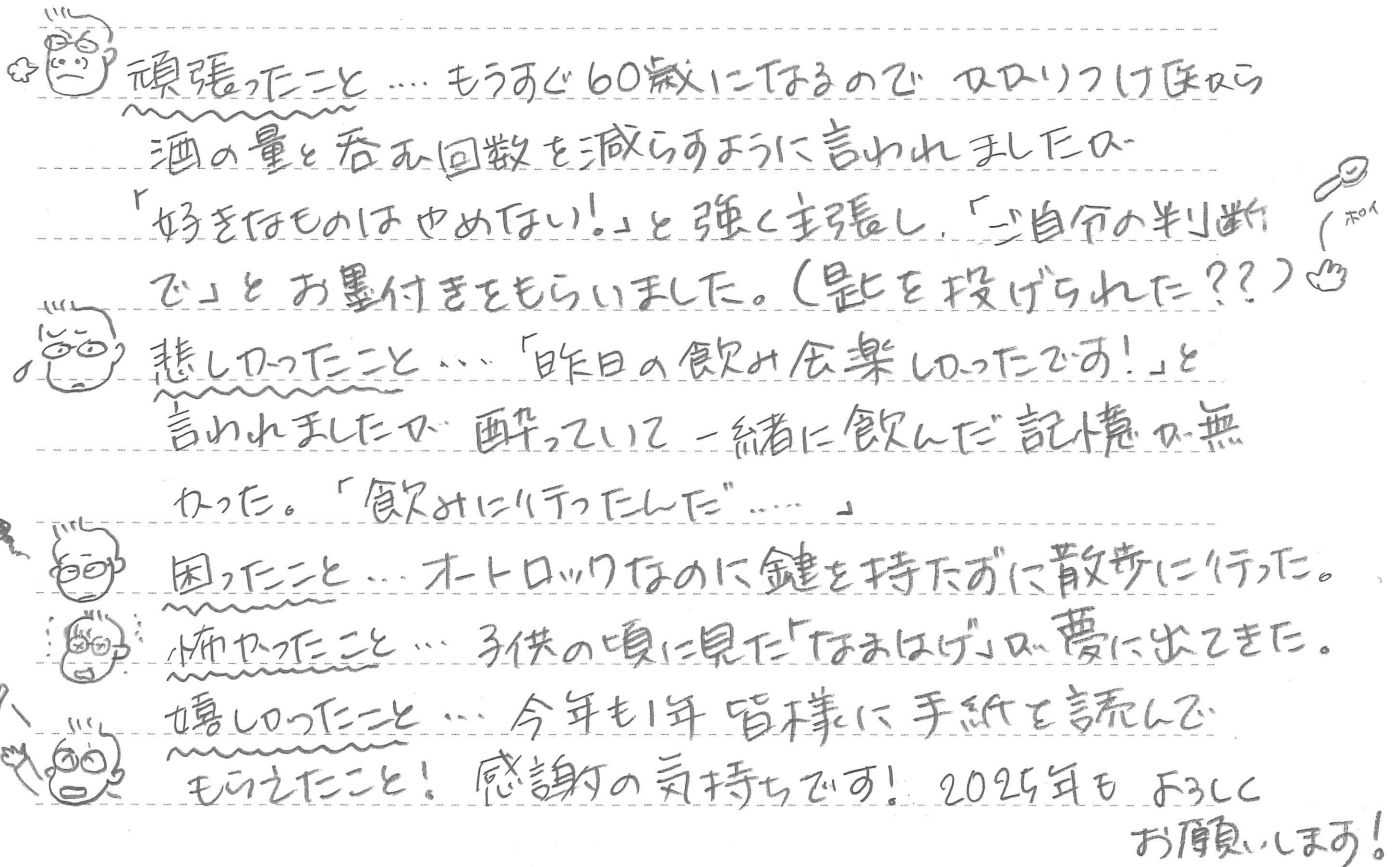 頑張ったこと…もうすぐ60歳になるので かかりつけ医から
酒の量と呑む回数を減らすように言われましたが
「好きなものはやめない!」と強く主張し、「ご自分の判断
ポイ
で」とお墨付きをもらいました。(匙を投げられた??)
悲しかったこと…「昨日の飲み会楽しかったです!」と
言われましたが 酔っていて一緒に飲んだ記憶が無
かった。「飲みに行ったんだ……」
困ったこと…オートロックなのに鍵を持たずに散歩に行った。
怖かったこと…子供の頃に見た「なまはげ」が夢に出てきた。
嬉しかったこと…今年も1年 皆様に手紙を読んで
もらえたこと! 感謝の気持ちです! 2025年も よろしく
お願いします!